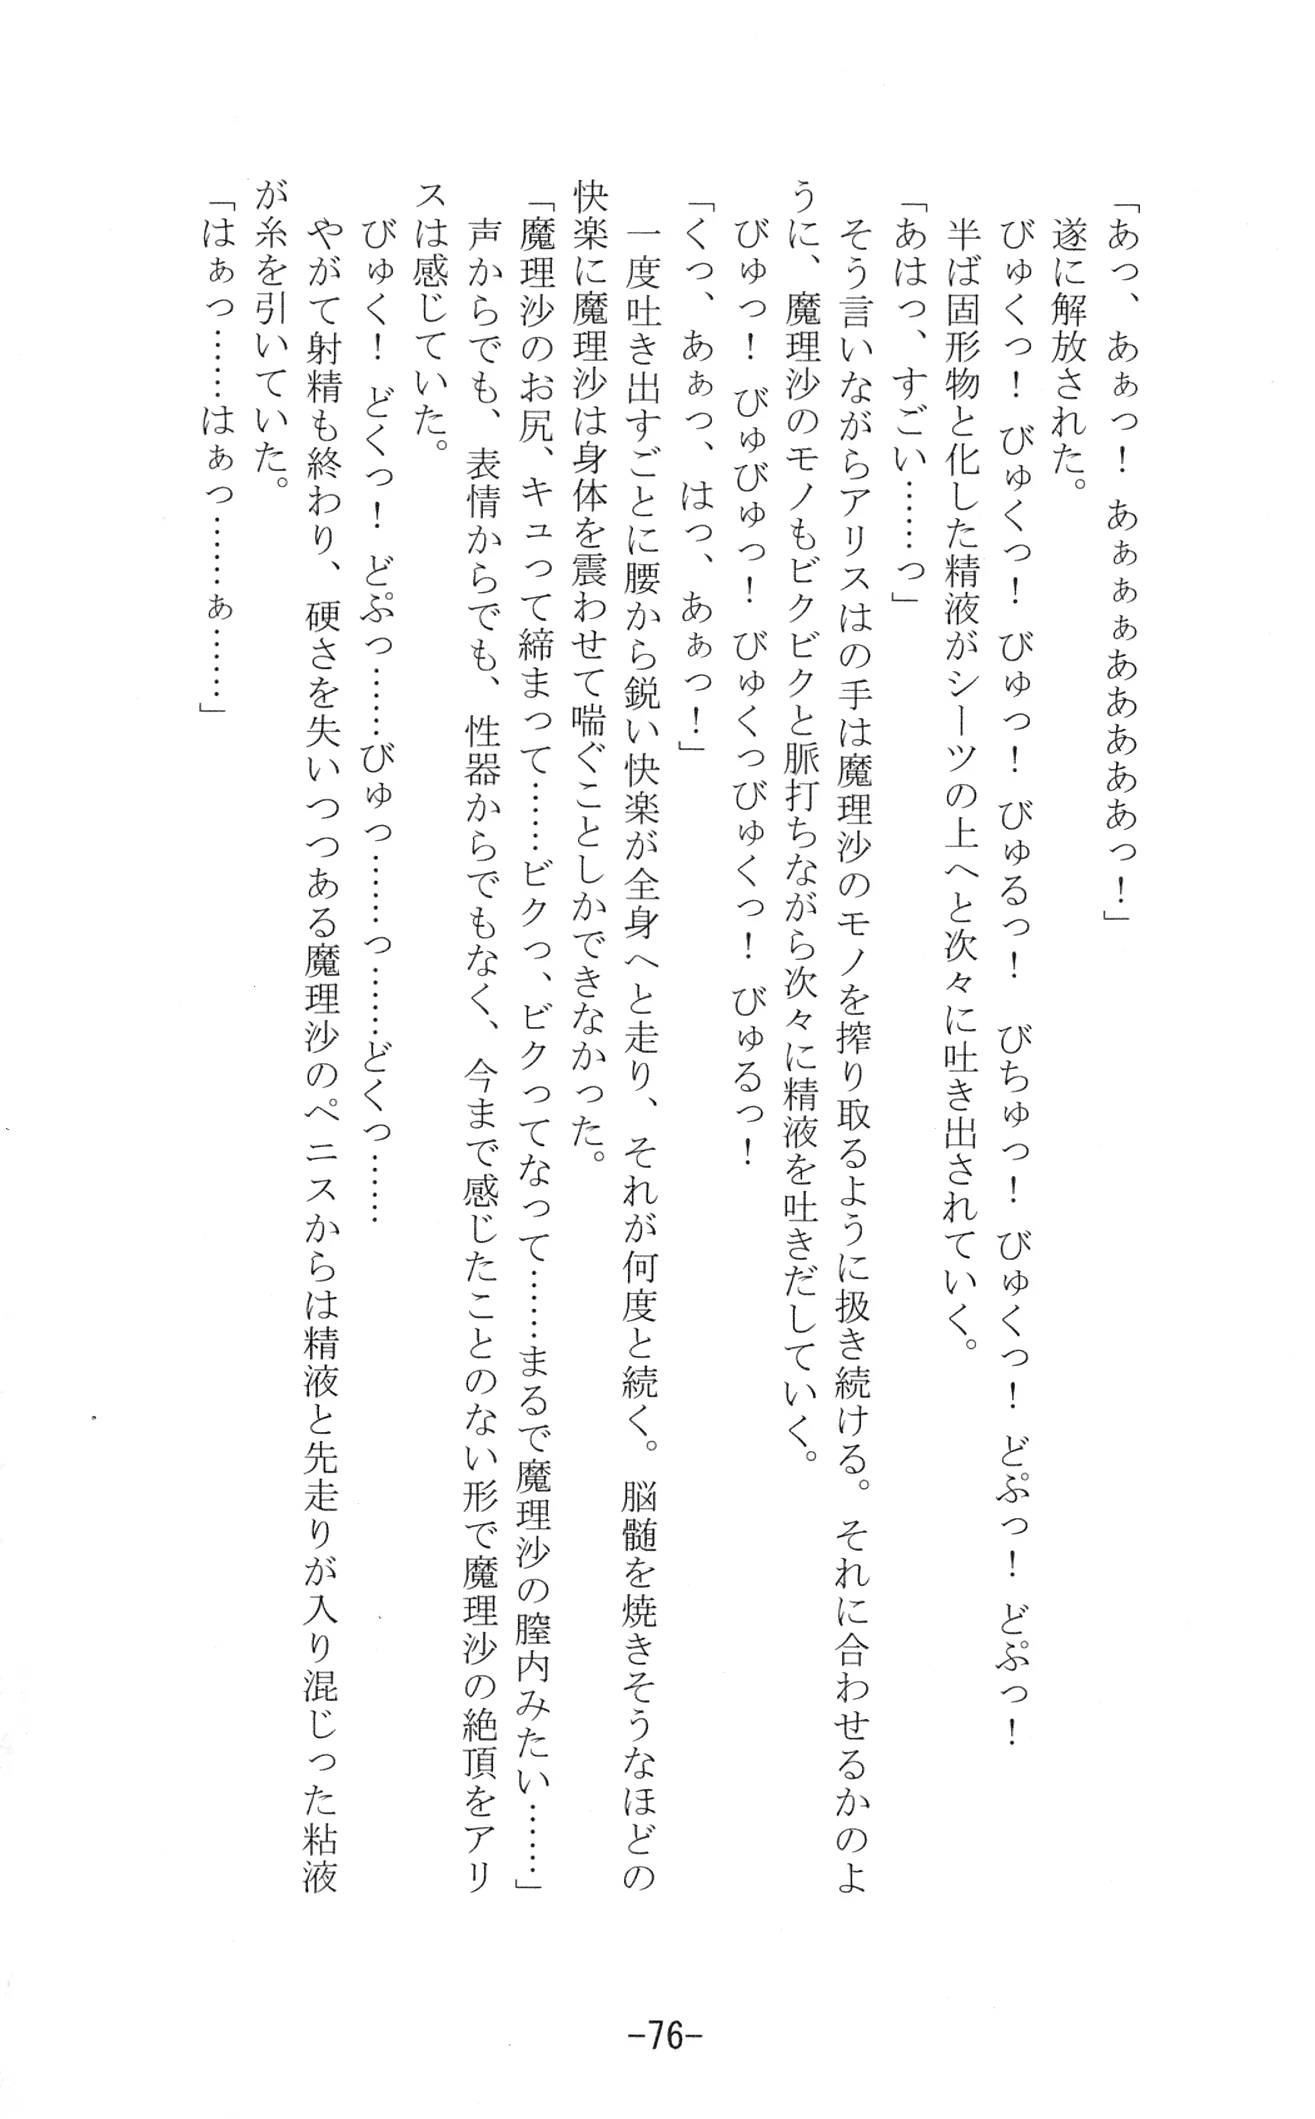 「あっ、あぁっ！　あぁぁぁあああああっ！」
遂に解放された。
びゅくっ！　びゅくっ！　びゅっ！　びゅるっ！　びちゅっ！　びゅくっ！　どぷっ！　どぷっ！
半ば固形物と化した精液がシーツの上へと次々に吐き出されていく。
「あはっ、すごい……っ」
そう言いながらアリスはの手は魔理沙のモノを搾り取るように扱き続ける。それに合わせるかのよ
うに、魔理沙のモノもビクビクと脈打ちながら次々に精液を吐きだしていく。
びゅっ！　びゅびゅっ！　びゅくっびゅくっ！　びゅるっ！
「くっ、あぁっ、はっ、あぁっ！」
一度吐き出すごとに腰から鋭い快楽が全身へと走り、それが何度と続く。脳髄を焼きそうなほどの
快楽に魔理沙は身体を震わせて喘ぐことしかできなかった。
「魔理沙のお尻、キュって締まって……ビクっ、ビクってなって……まるで魔理沙の膣内みたい……」
声からでも、表情からでも、性器からでもなく、今まで感じたことのない形で魔理沙の絶頂をアリ
スは感じていた。
びゅく！　どくっ！　どぷっ……びゅっ……っ……どくっ……
やがて射精も終わり、硬さを失いつつある魔理沙のペニスからは精液と先走りが入り混じった粘液
が糸を引いていた。
「はぁっ……はぁっ……ぁ……」
-76-